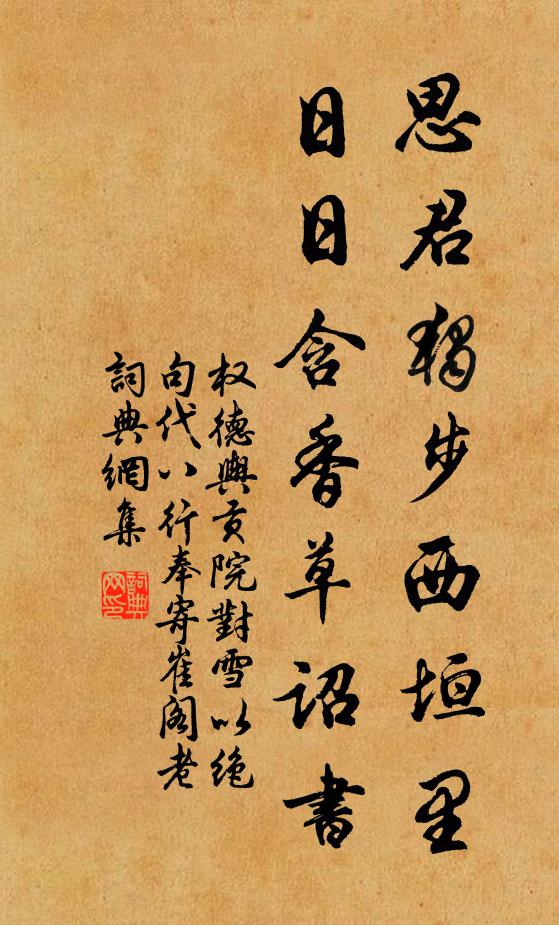 思君独步西垣里
日日含香草詔書
权德輿貢院對雪以絶
句代八行奉寄崔阁老
詞典網集
詞典
网印